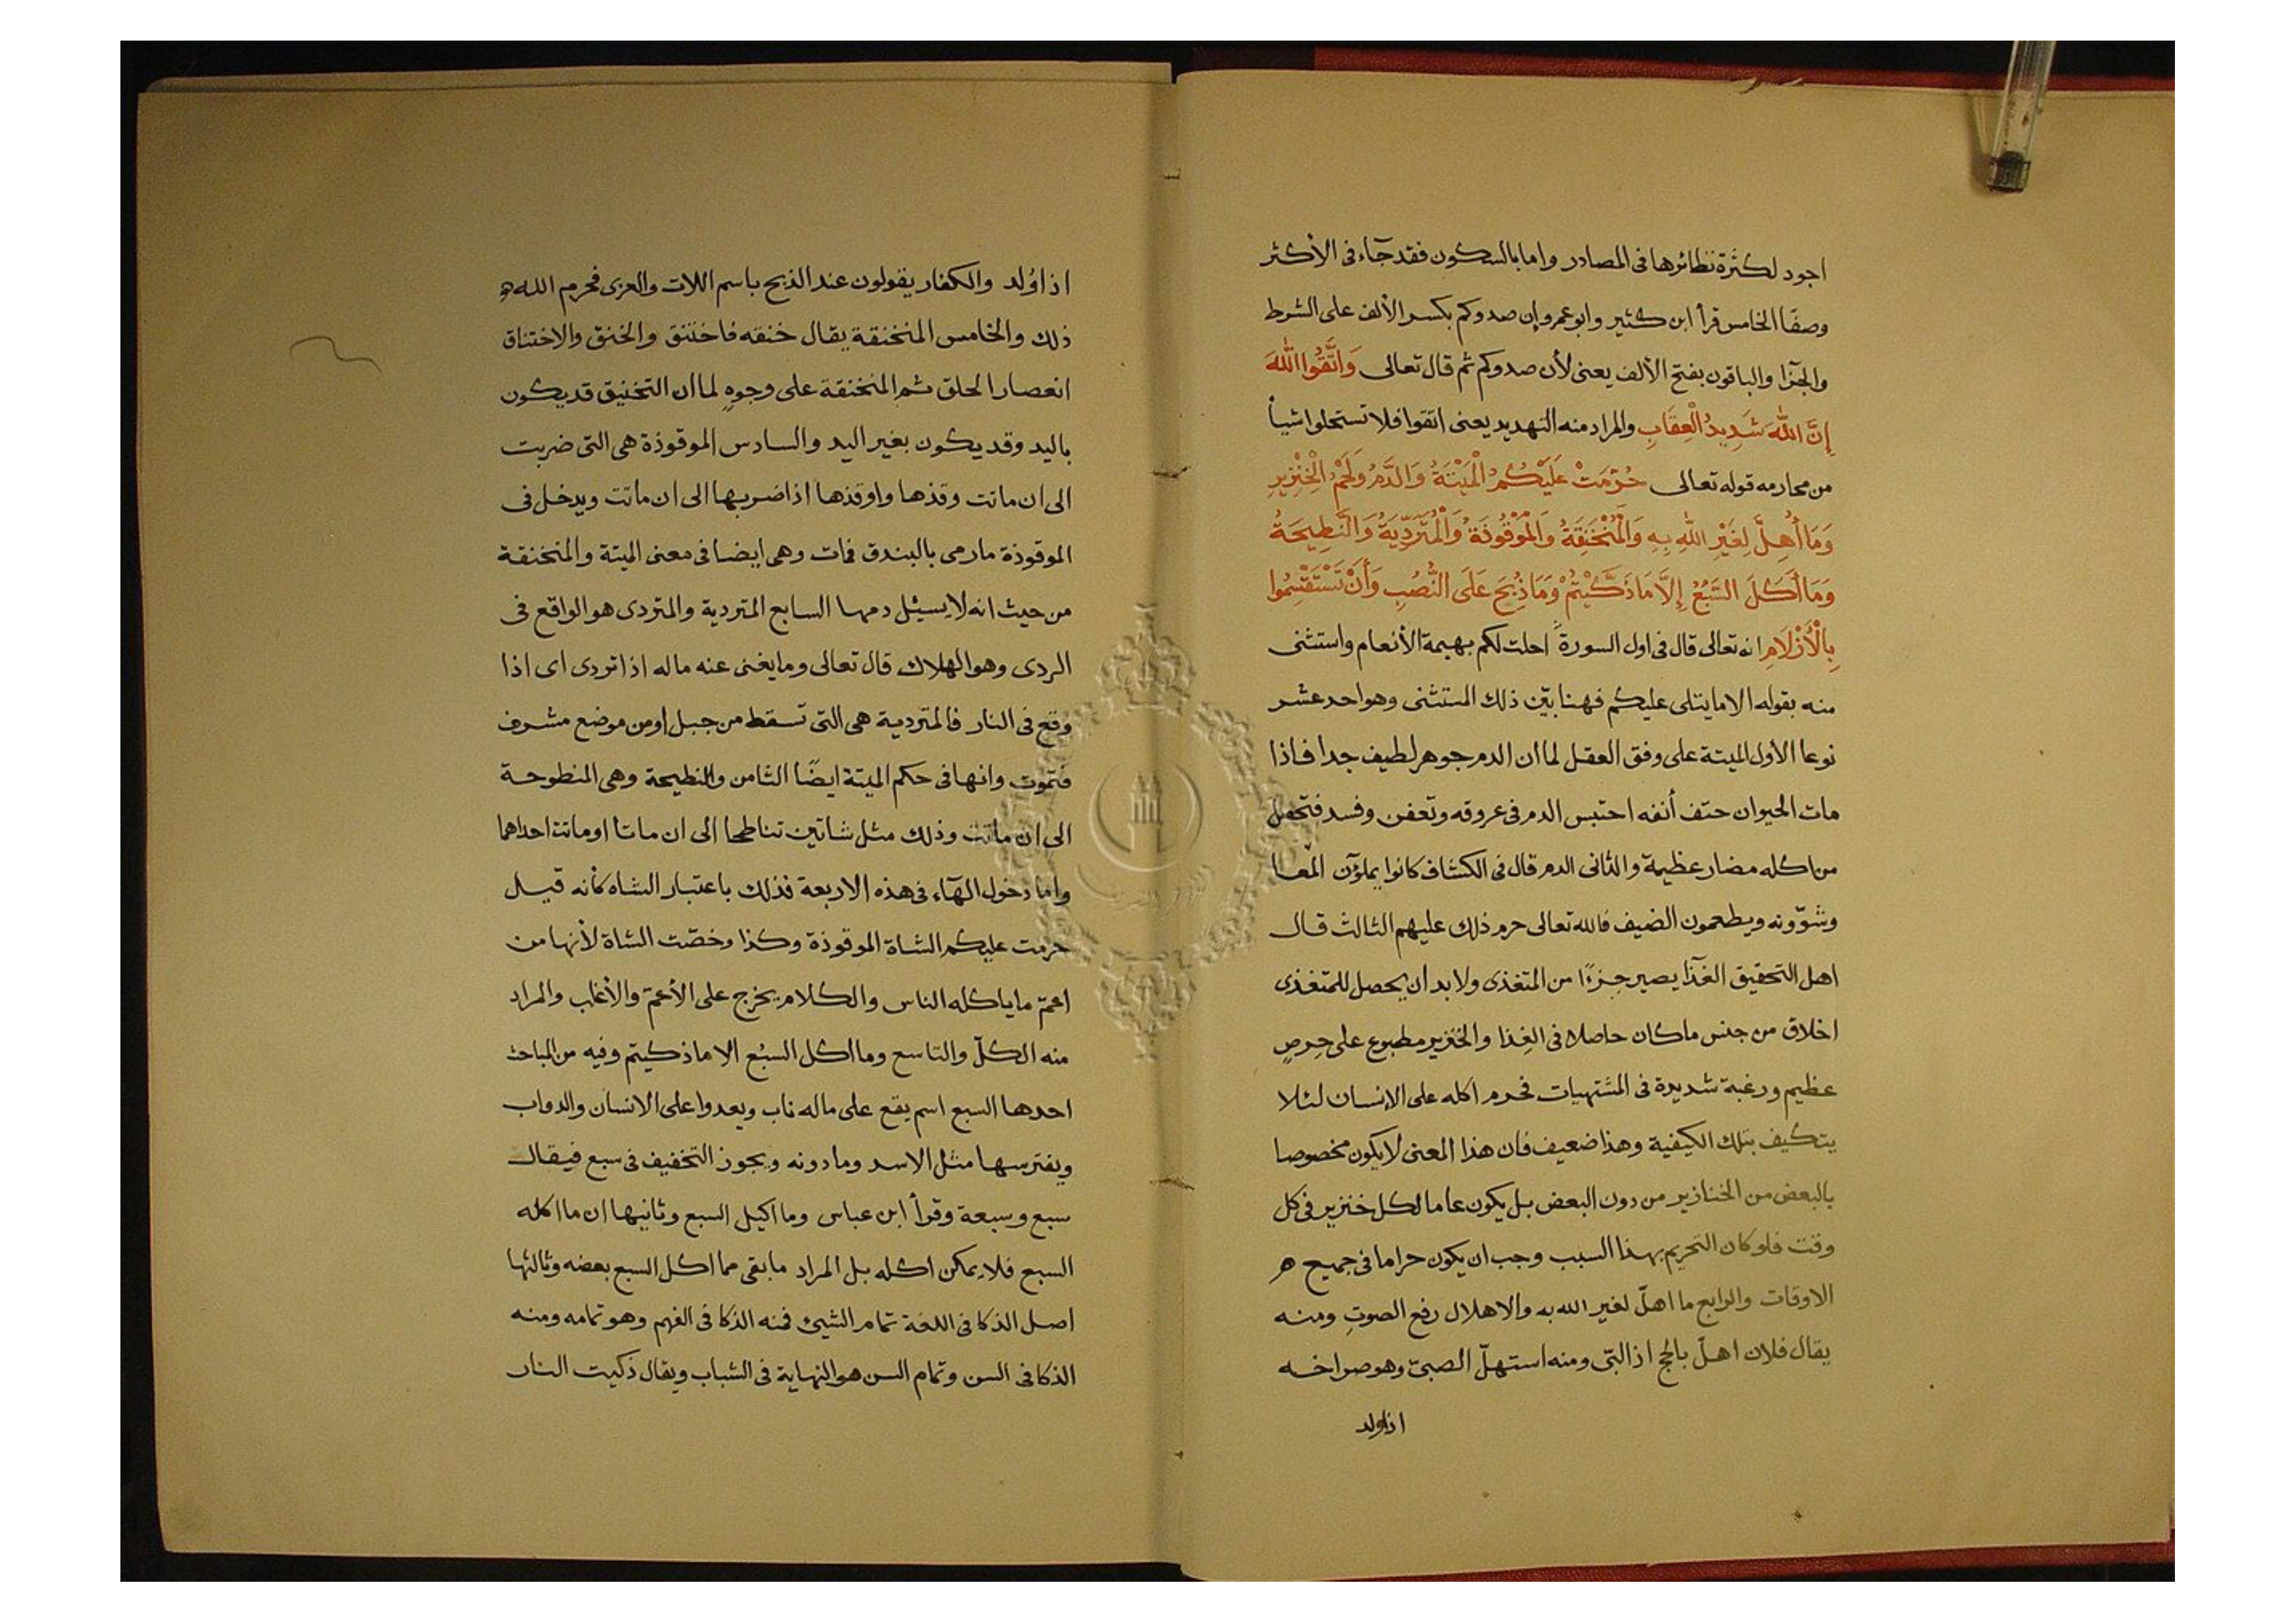 اجود لكثرة نظائرها فى المصادر واما بالسكون فقد جآء فى الأكثر
وصفًا الخامس قرأ ابن كثير وابو عمرو إن صدوكم بكسر الألف على الشرط
والجزآ والباقون بفتح الألف يعنى لأن صدوكم ثم قال تعالى وَاتَّقُوا اللَّهَ
إِنَّ اللَّهَ شَدِيدُ الْعِقَابِ والمراد منه التهديد يعنى اتقوا فلا تستحلوا شيأ
من محارمه قوله تعالى حُرِّمَتْ عَلَيْكُمُ الْمَيْتَةُ وَالدَّمُ وَلَحْمُ الْخِنْزِيرِ
وَمَا أُهِلَّ لِغَيْرِ اللَّهِ بِهِ وَالْمُنْخَنِقَةُ وَالْمَوْقُوذَةُ وَالْمُتَرَدِّيَةُ وَالنَّطِيحَةُ
وَمَا أَكَلَ السَّبُعُ إِلَّا مَا ذَكَّيْتُمْ وَمَا ذُبِحَ عَلَى النُّصُبِ وَأَنْ تَسْتَقْسِمُوا
بِالْأَزْلَامِ انه تعالى قال فى اول السورة احلت لكم بهيمة الأنعام واستثنى
منه بقوله الا ما يتلى عليكم فهنا بيّن ذلك المستثنى وهو احد عشر
نوعا الأول الميتة على وفق العقل لما ان الدم جوهر لطيف جدا فاذا
مات الحيوان حتف أنفه احتبس الدم فى عروقه وتعفن وفسد فتحصل
من اكله مضار عظيمة والثانى الدم قال فى الكشاف كانوا يملؤن المعا
وشوّونه ويطعمون الضيف فالله تعالى حرم ذلك عليهم الثالث قال
اهل التحقيق الغذآ يصير جزءًا من المتغذى ولا بد ان يحصل للمتغذى
اخلاق من جنس ما كان حاصلا فى الغِذا والخنزير مطبوع على حِرصٍ
عظيم ورغبة شديدة فى المشتهيات فحرم اكله على الإنسان لئلا
يتكيف بتلك الكيفية وهذا ضعيف فان هذا المعنى لا يكون مخصوصا
بالبعض من الخنازير من دون البعض بل يكون عاما لكل خنزير فى كل
وقت فلو كان التحريم بهذا السبب وجب ان يكون حراما فى جميع ه
الاوقات والرابع ما اهلّ لغير الله به والاهلال رفع الصوتِ ومنه
يقال فلان اهلّ بالحج اذ البّى ومنه استهلّ الصبىّ وهو صراخه
اذا ولد
اذا وُلد والكفار يقولون عند الذبح باسم اللات والعزى فحرم الله ه
ذلك والخامس المنخنقة يقال خنقه فاختنق والخنق والاختناق
انعصار الحلق ثم المنخنقة على وجوهٍ لما ان التخنيق قد يكون
باليد وقد يكون بغير اليد والسادس الموقوذة هى التى ضربت
الى ان ماتت وقذها واوقذها اذا ضربها الى ان ماتت ويدخل فى
الموقوذة ما رمى بالبندق فمات وهى ايضا فى معنى الميتة والمنخنقة
من حيث انه لا يسيل دمها السابع المتردية والمتردى هو الواقع فى
الردى وهو الهلاك قال تعالى وما يغنى عنه ماله اذا تردى اى اذا
وقع فى النار فالمتردية هى التى تسقط من جبل او من موضع مشرف
فتموت وانها فى حكم الميتة ايضًا الثامن والنطيحة وهى المنطوحة
الى ان ماتت وذلك مثل شاتين تناطحا الى ان ماتا او ماتت احداهما
واما دخول الهآء فى هذه الاربعة فذلك باعتبار الشاه كأنه قيل
حرمت عليكم الشاة الموقوذة وكذا وخصّت الشاة لأنها من
اعمّ ما ياكله الناس والكلام يخرج على الأعمّ والأغلب والمراد
منه الكلّ والتاسع وما اكل السبُع الا ما ذكيتم وفيه من المباحث
احدها السبع اسم يقع على ما له ناب ويعدوا على الانسان والدواب
ويفترسها مثل الاسد وما دونه ويجوز التخفيف فى سبع فيقال
سبع وسبعة وقرأ ابن عباس وما اكيل السبع وثانيها ان ما اكله
السبع فلا يمكن اكله بل المراد ما بقى مما اكل السبع بعضه وثالثها
اصل الذكا فى اللغة تمام الشيئ فمنه الذكا فى الفهم وهو تمامه ومنه
الذكا فى السن وتمام السن هو النهاية فى الشباب ويقال ذكيت النار